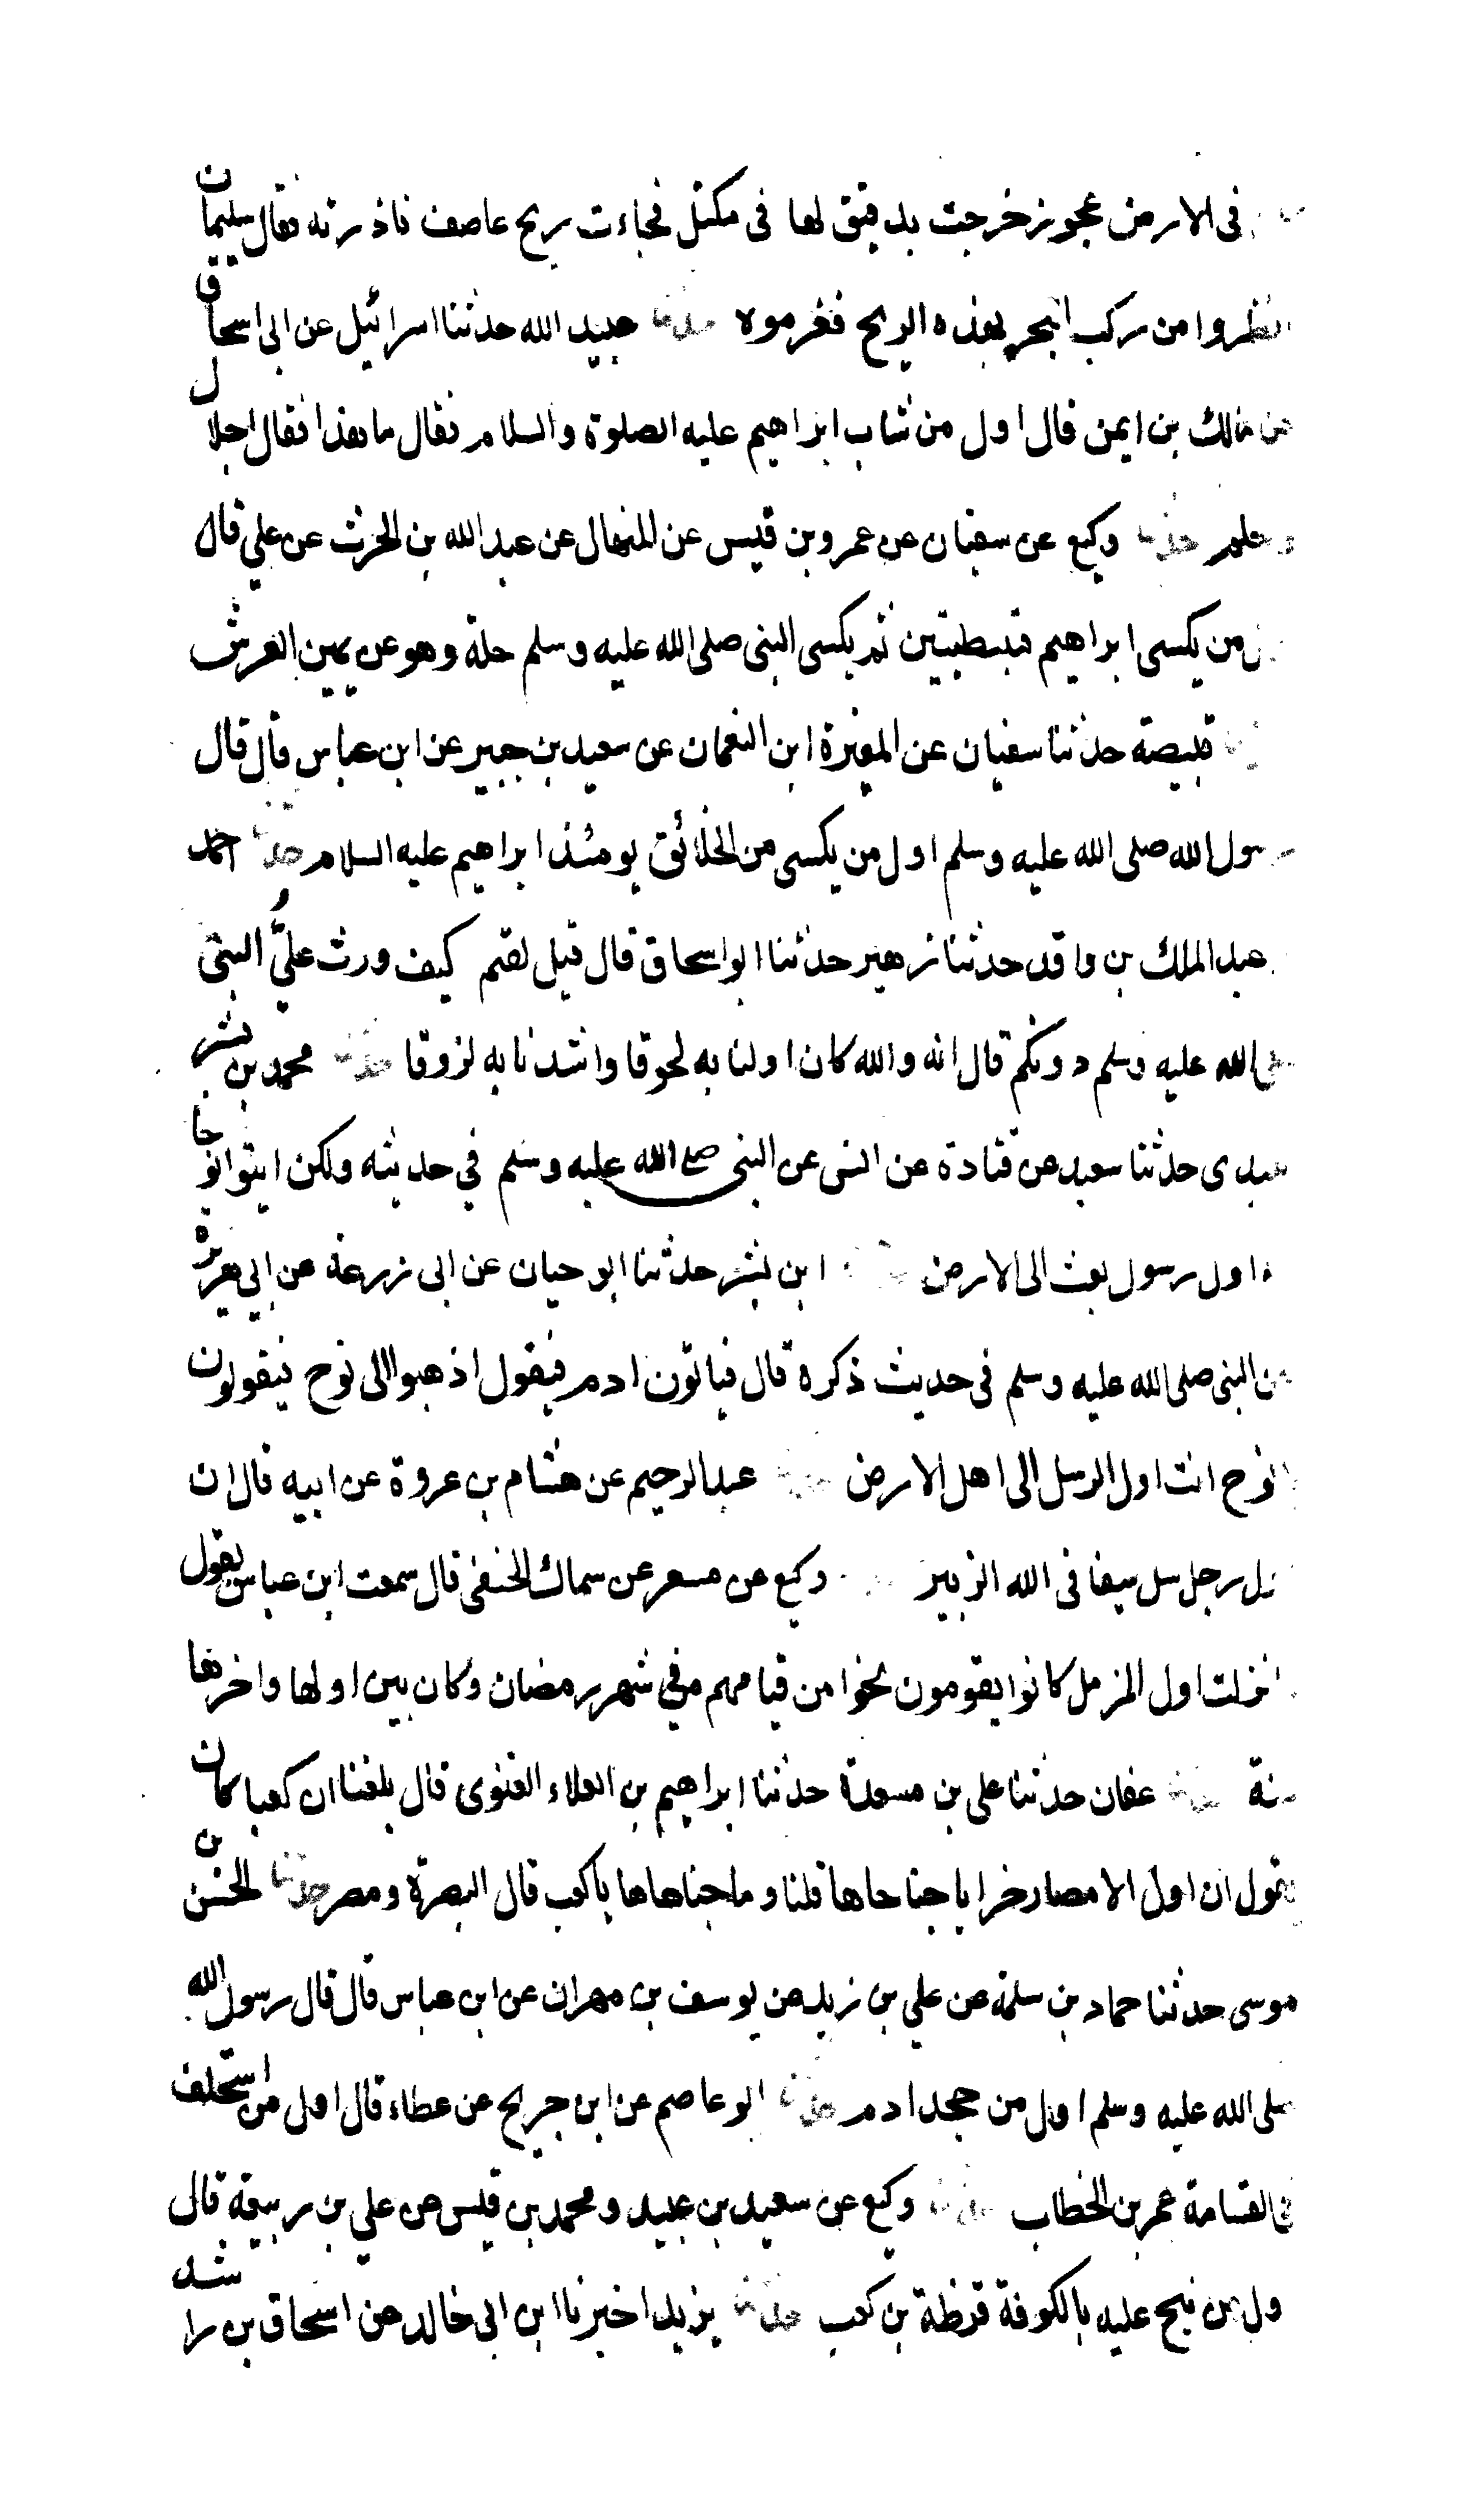 فى الارض عجوز خرجت بدقيق لها فى مكتل فجاءت ريح عاصف فاذرته فقال سليمان
انظروا من ركب البحر بهذه الريح فغرموه حدثنا عبيد الله حدثنا اسرائيل عن ابى اسحاق
عن مالك بن ايمن قال اول من شاب ابراهيم عليه الصلوة والسلام فقال ما هذا فقال اجلال
وحلم حدثنا وكيع عن سفيان عن عمرو بن قيس عن المنهال عن عبد الله بن الحرث عن علي قال
من يكسى ابراهيم قبطيتين ثم يكسى النبى صلى الله عليه وسلم حلة وهو عن يمين العرش
قبيصة حدثنا سفيان عن المغيرة ابن النعمان عن سعيد بن جبير عن ابن عباس قال قال
رسول الله صلى الله عليه وسلم اول من يكسى من الخلائق يومئذ ابراهيم عليه السلام حدثنا احمد
عبد الملك بن واقد حدثنا زهير حدثنا ابو اسحاق قال قيل لقثم كيف ورث عليٌّ النبى
صلى الله عليه وسلم دونكم قال انه والله كان اولنا به لحوقا واشدنا به لزوقا حدثنا محمد بن بشر
عبدى حدثنا سعيد عن قتادة عن انس عن النبى صلى الله عليه وسلم في حديثه ولكن ايتوا نوحا
اول رسول بعث الى الارض ابن بشر حدثنا ابو حيان عن ابى زرعة عن ابي هريرة
عن النبى صلى الله عليه وسلم فى حديث ذكره قال فياتون ادم فيقول اذهبوا الى نوح فيقولون
نوح انت اول الرسل الى اهل الارض عبد الرحيم عن هشام بن عروة عن ابيه قال ان
اول رجل سل سيفا فى الله الزبير وكيع عن مسعر عن سماك الحنفى قال سمعت ابن عباس يقول
انزلت اول المزمل كانوا يقومون نحوا من قيامهم في شهر رمضان وكان بين اولها واخرها
سنة حدثنا عفان حدثنا على بن مسعدة حدثنا ابراهيم بن العلاء الغنوى قال بلغنا ان كعبا كان
يقول ان اول الامصار خرابا جناحاها قلنا وما جناحاها يا كعب قال البصرة ومصر حدثنا الحسن بن
موسى حدثنا حماد بن سلمة عن علي بن زيد عن يوسف بن مهران عن ابن عباس قال قال رسول الله
صلى الله عليه وسلم اول من جحد ادم حدثنا ابو عاصم عن ابن جريح عن عطاء قال اول من استحلف
فى القسامة عمر بن الخطاب حدثنا وكيع عن سعيد بن عبيد ومحمد بن قيس عن علي بن ربيعة قال
اول من نيح عليه بالكوفة قرظة بن كعب حدثنا يزيد اخبرنا ابن ابى خالد عن اسحاق بن راشد